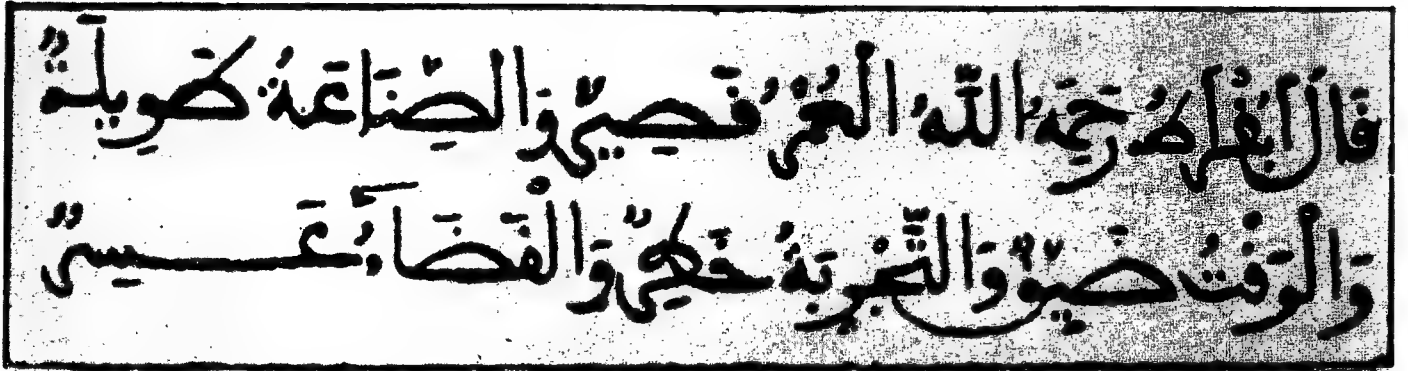 قَالَ ابُقْرَاطُ رَحِمَهُ اللّٰهُ الْعُمْرُ قَصِيرٌ وَالصِّنَاعَةُ طَوِيلَةٌ
وَالْوَقْتُ ضَيِّقٌ وَالتَّجْرِبَةُ خَطِرٌ وَالْقَضَاءُ عَسِيرٌ